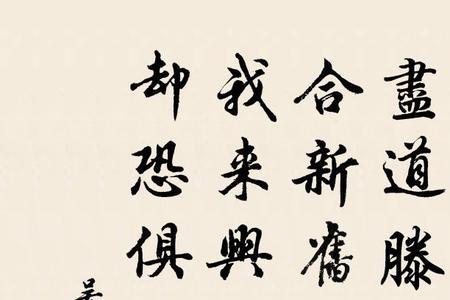 盡道滕
合新舊
我来興
却恐俱